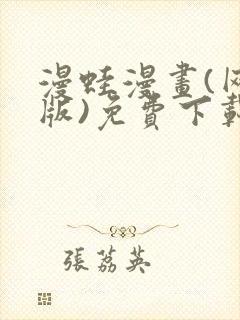 漫蛙漫畫(
版)免費下載
張荔英